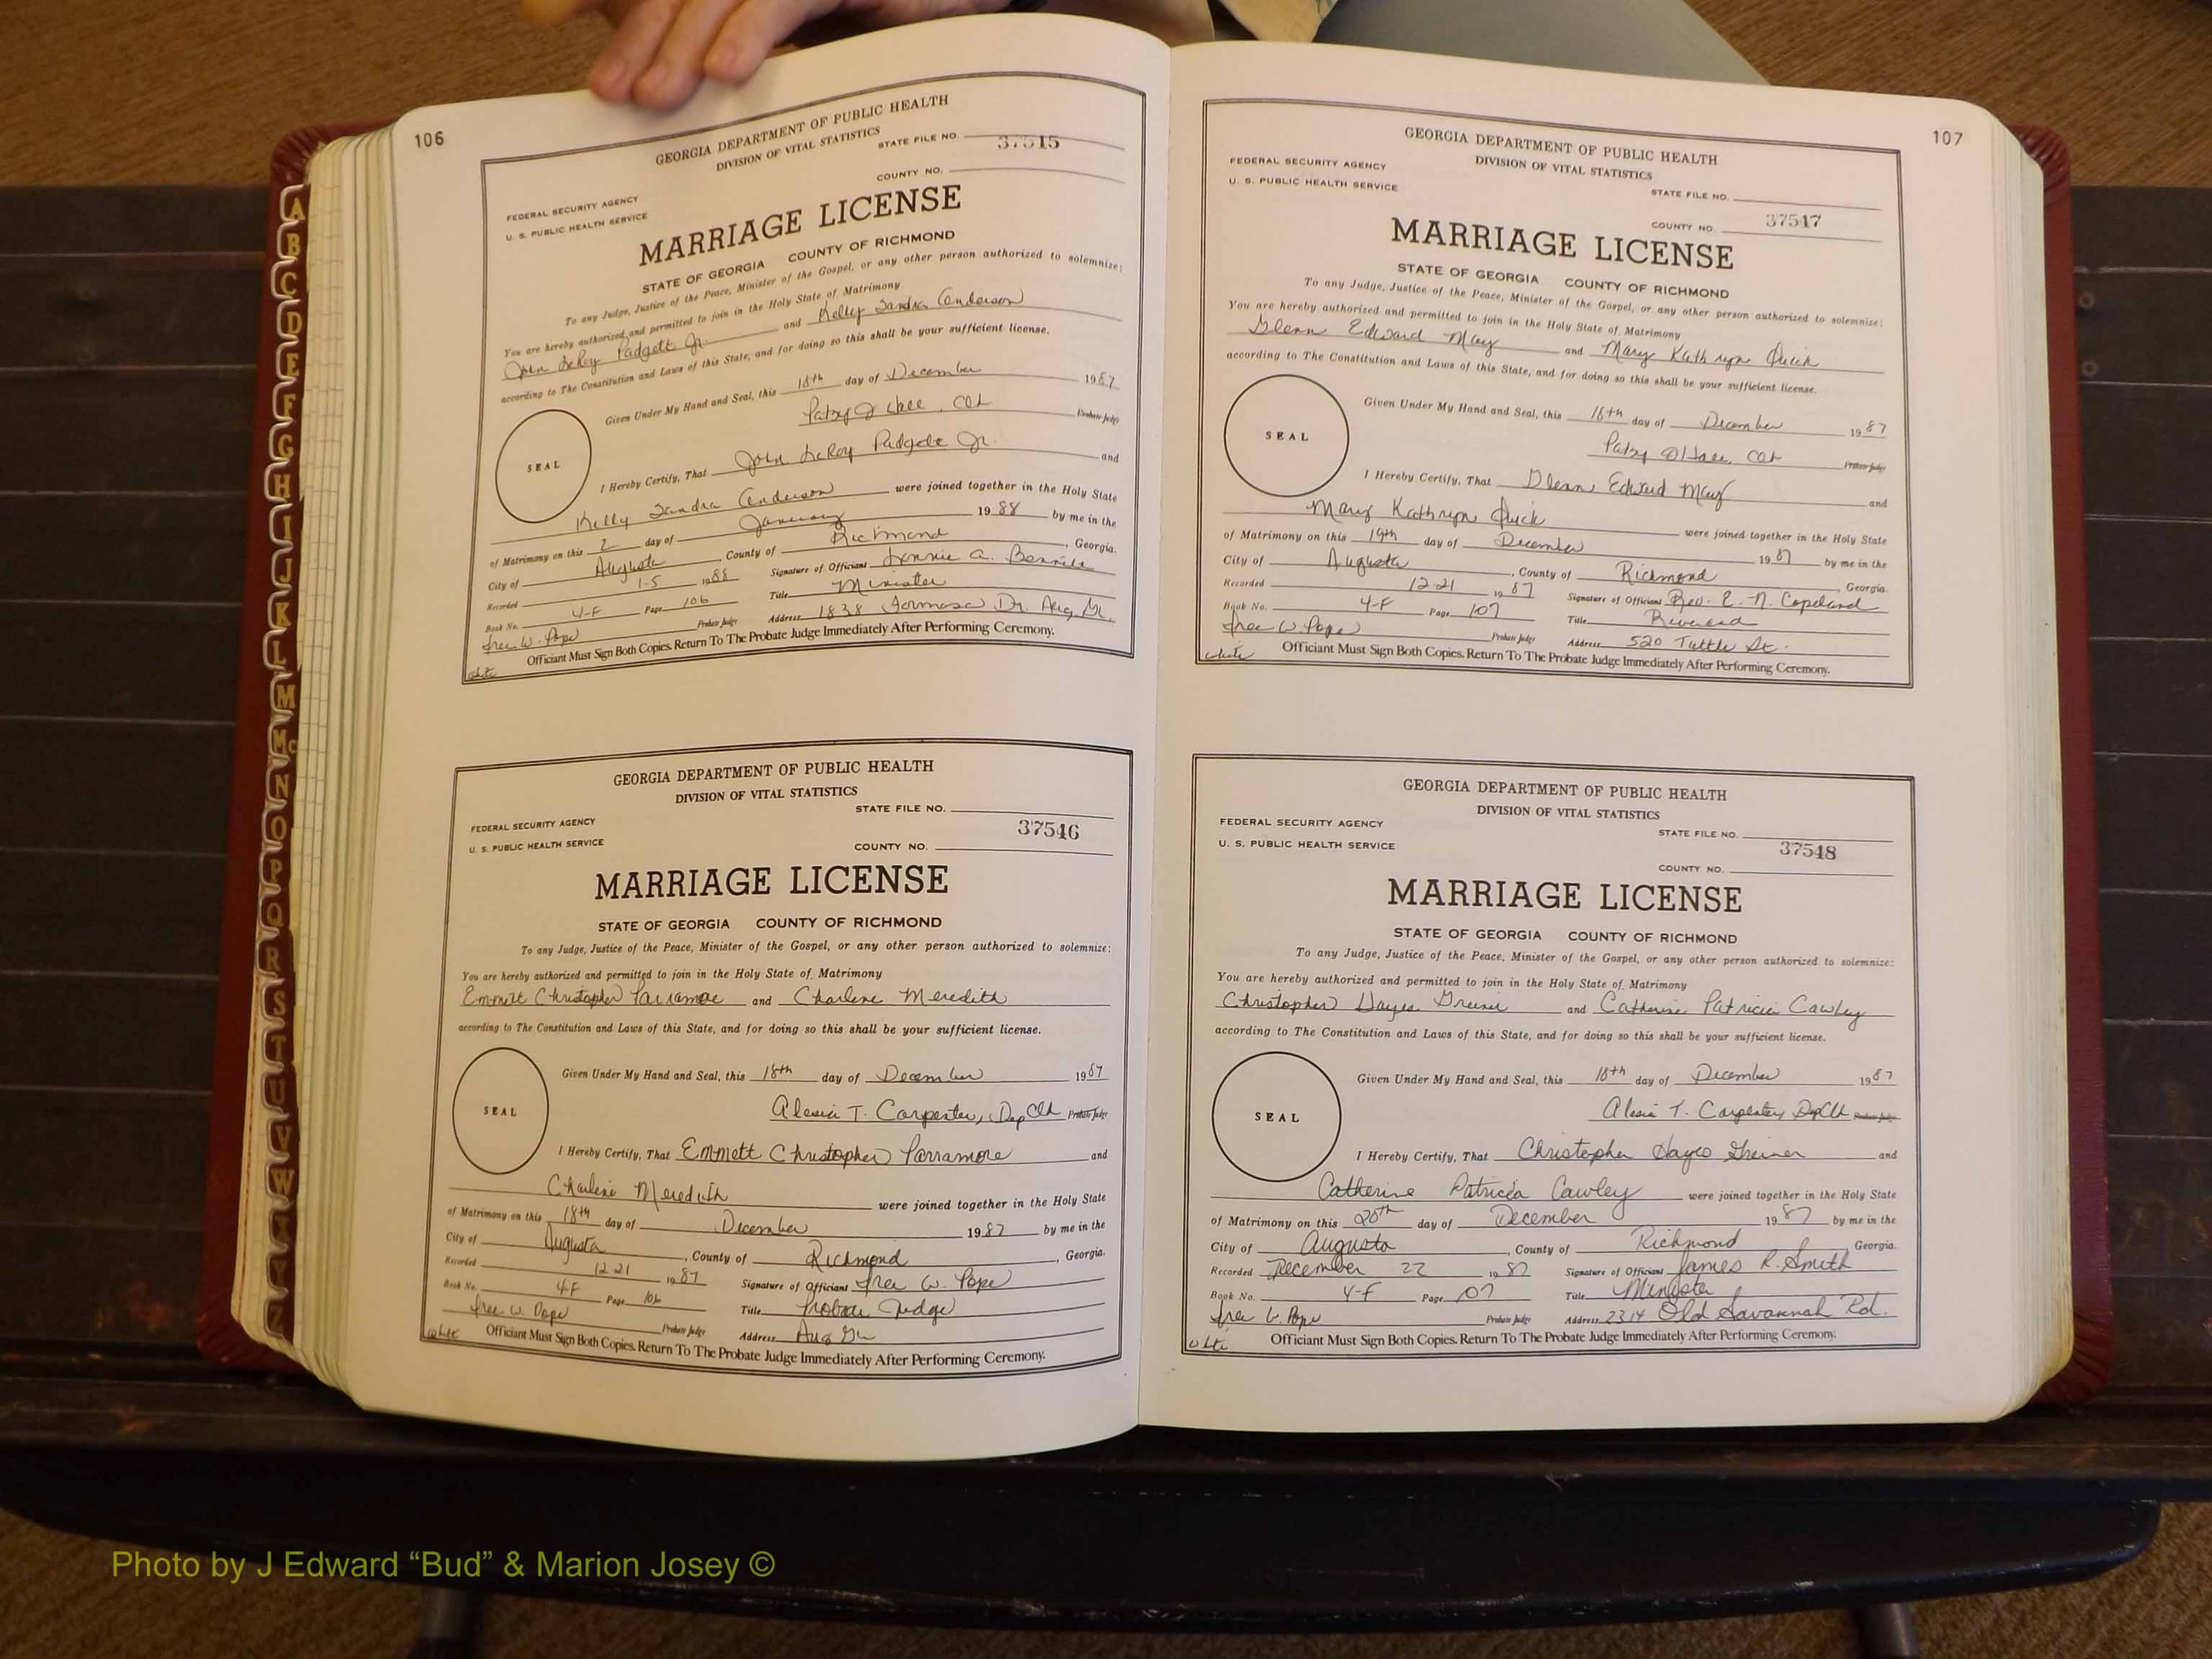 106
GEORGIA DEPARTMENT OF PUBLIC HEALTH
DIVISION OF VITAL STATISTICS
STATE FILE NO. 37515
COUNTY NO.
FEDERAL SECURITY AGENCY
U. S. PUBLIC HEALTH SERVICE
MARRIAGE LICENSE
STATE OF GEORGIA COUNTY OF RICHMOND
To any Judge, Justice of the Peace, Minister of the Gospel, or any other person authorized to solemnize:
You are hereby authorized and permitted to join in the Holy State of Matrimony
John LeRoy Padgett Jr. and Kelly Sandra Anderson
according to The Constitution and Laws of this State, and for doing so this shall be your sufficient license.
Given Under My Hand and Seal, this 18th day of December 1987
Patsy Probate Judge
SEAL
I Hereby Certify, That John LeRoy Padgett Jr. and
Kelly Sandra Anderson were joined together in the Holy State
of Matrimony on this 2 day of January 1988 by me in the
City of Augusta County of Richmond, Georgia.
Recorded 1-5 1988 Signature of Officiant A.
Book No. 4-F Page 106 Title Minister
W. Pope Probate Judge Address 1838 Formosa Dr. Aug, Ga.
Officiant Must Sign Both Copies. Return To The Probate Judge Immediately After Performing Ceremony.
white
GEORGIA DEPARTMENT OF PUBLIC HEALTH
DIVISION OF VITAL STATISTICS
STATE FILE NO.
FEDERAL SECURITY AGENCY
37546
U. S. PUBLIC HEALTH SERVICE
COUNTY NO.
MARRIAGE LICENSE
STATE OF GEORGIA COUNTY OF RICHMOND
To any Judge, Justice of the Peace, Minister of the Gospel, or any other person authorized to solemnize:
You are hereby authorized and permitted to join in the Holy State of Matrimony
Emmett Christopher Parramore and Charlene Meredith
according to The Constitution and Laws of this State, and for doing so this shall be your sufficient license.
Given Under My Hand and Seal, this 18th day of December 1987
Alesia T. Carpenter, Dep Clk Probate Judge
SEAL
I Hereby Certify, That Emmett Christopher Parramore and
Charlene Meredith were joined together in the Holy State
of Matrimony on this 18th day of December 1987 by me in the
City of Augusta, County of Richmond, Georgia.
Recorded 12-21 1987 Signature of Officiant W. Pope
Book No. 4-F Page 106 Title Probate Judge
W. Pope Probate Judge Address Aug Ga
Officiant Must Sign Both Copies. Return To The Probate Judge Immediately After Performing Ceremony.
white
107
GEORGIA DEPARTMENT OF PUBLIC HEALTH
DIVISION OF VITAL STATISTICS
FEDERAL SECURITY AGENCY
U. S. PUBLIC HEALTH SERVICE
STATE FILE NO.
COUNTY NO. 37547
MARRIAGE LICENSE
STATE OF GEORGIA COUNTY OF RICHMOND
To any Judge, Justice of the Peace, Minister of the Gospel, or any other person authorized to solemnize:
You are hereby authorized and permitted to join in the Holy State of Matrimony
Glenn Edward May and Mary Kathryn Quick
according to The Constitution and Laws of this State, and for doing so this shall be your sufficient license.
Given Under My Hand and Seal, this 16th day of December 1987
Patsy Probate Judge
SEAL
I Hereby Certify, That Glenn Edward May and
Mary Kathryn Quick were joined together in the Holy State
of Matrimony on this 19th day of December 1987 by me in the
City of Augusta, County of Richmond, Georgia.
Recorded 12-21 1987 Signature of Officiant Rev. E. N. Copeland
Book No. 4-F Page 107 Title Reverend
W. Pope Probate Judge Address 520 Tuttle St.
Officiant Must Sign Both Copies. Return To The Probate Judge Immediately After Performing Ceremony.
white
GEORGIA DEPARTMENT OF PUBLIC HEALTH
DIVISION OF VITAL STATISTICS
FEDERAL SECURITY AGENCY
STATE FILE NO.
U. S. PUBLIC HEALTH SERVICE
37548
COUNTY NO.
MARRIAGE LICENSE
STATE OF GEORGIA COUNTY OF RICHMOND
To any Judge, Justice of the Peace, Minister of the Gospel, or any other person authorized to solemnize:
You are hereby authorized and permitted to join in the Holy State of Matrimony
Christopher Hayes Greiner and Catherine Patricia Cawley
according to The Constitution and Laws of this State, and for doing so this shall be your sufficient license.
Given Under My Hand and Seal, this 18th day of December 1987
Alesia T. Carpenter, Dep Clk Probate Judge
SEAL
I Hereby Certify, That Christopher Hayes Greiner and
Catherine Patricia Cawley were joined together in the Holy State
of Matrimony on this 20th day of December 1987 by me in the
City of Augusta, County of Richmond Georgia.
Recorded December 22 1987 Signature of Officiant James R. Smith
Book No. 4-F Page 107 Title Minister
W. Pope Probate Judge Address 2314 Old Savannah Rd.
Officiant Must Sign Both Copies. Return To The Probate Judge Immediately After Performing Ceremony.
white
A
B
C
D
E
F
G
H
I
J
K
L
M
Mc
N
O
P
Q
R
S
T
U
V
W
X
Y
Z
Photo by J Edward “Bud” & Marion Josey ©